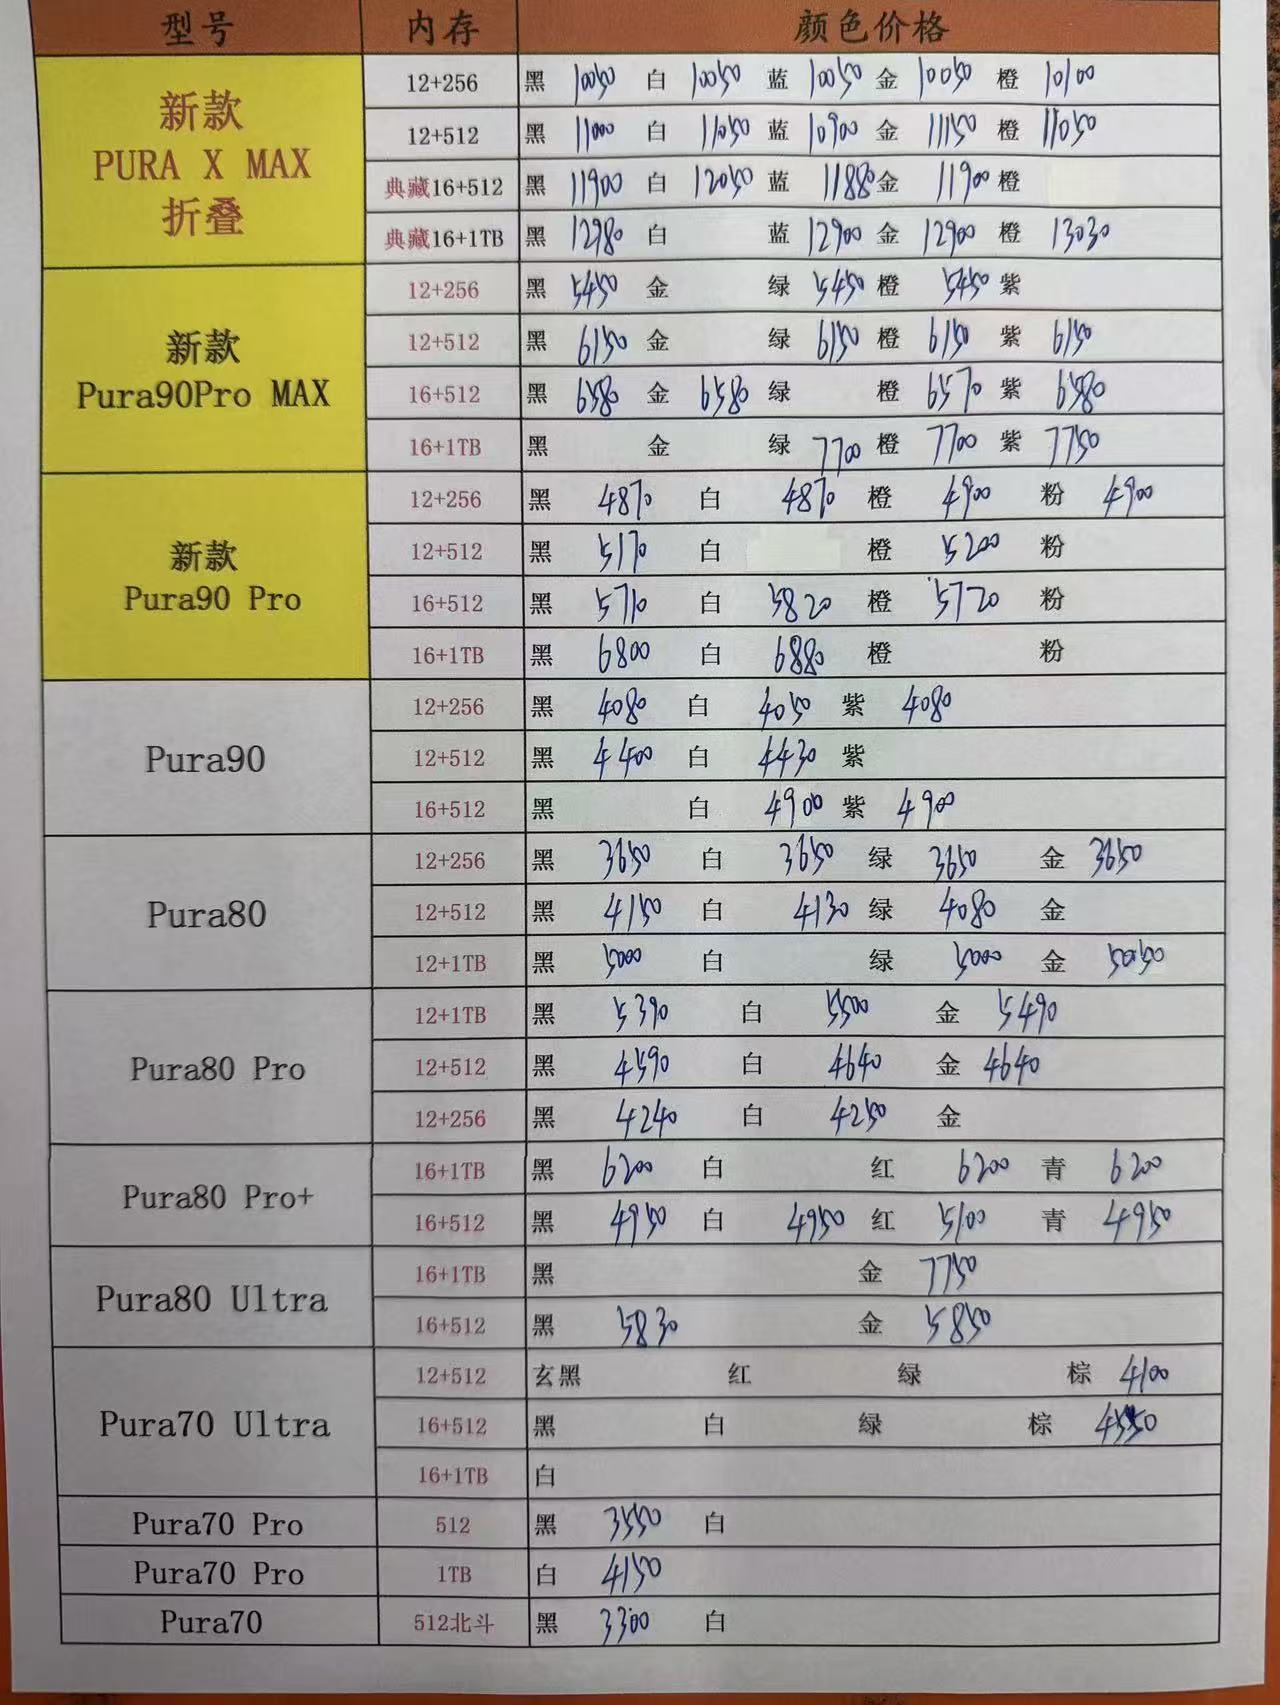 型号 内存 颜色价格
新款 PURA X MAX 折叠
12+256 黑 10050 白 10050 蓝 10050 金 10050 橙 10100
12+512 黑 11000 白 11050 蓝 10900 金 11150 橙 11050
典藏16+512 黑 11900 白 12050 蓝 11880 金 11900 橙
典藏16+1TB 黑 12980 白 蓝 12900 金 12900 橙 13030
新款 Pura90Pro MAX
12+256 黑 5450 金 绿 5450 橙 5450 紫
12+512 黑 6150 金 绿 6150 橙 6150 紫 6150
16+512 黑 6580 金 6580 绿 橙 6570 紫 6580
16+1TB 黑 金 绿 7700 橙 7700 紫 7750
新款 Pura90 Pro
12+256 黑 4870 白 4870 橙 4900 粉 4900
12+512 黑 5170 白 橙 5200 粉
16+512 黑 5710 白 5820 橙 5720 粉
16+1TB 黑 6800 白 6880 橙 粉
Pura90
12+256 黑 4080 白 4050 紫 4080
12+512 黑 4400 白 4430 紫
16+512 黑 白 4900 紫 4900
Pura80
12+256 黑 3650 白 3650 绿 3650 金 3650
12+512 黑 4150 白 4130 绿 4080 金
12+1TB 黑 5000 白 绿 5000 金 5050
Pura80 Pro
12+1TB 黑 5390 白 5500 金 5490
12+512 黑 4590 白 4640 金 4640
12+256 黑 4240 白 4250 金
Pura80 Pro+
16+1TB 黑 6200 白 红 6200 青 6200
16+512 黑 4950 白 4950 红 5100 青 4950
Pura80 Ultra
16+1TB 黑 金 7750
16+512 黑 5830 金 5850
Pura70 Ultra
12+512 玄黑 红 绿 棕 4100
16+512 黑 白 绿 棕 4550
16+1TB 白
Pura70 Pro 512 黑 3550 白
Pura70 Pro 1TB 白 4150
Pura70 512北斗 黑 3300 白